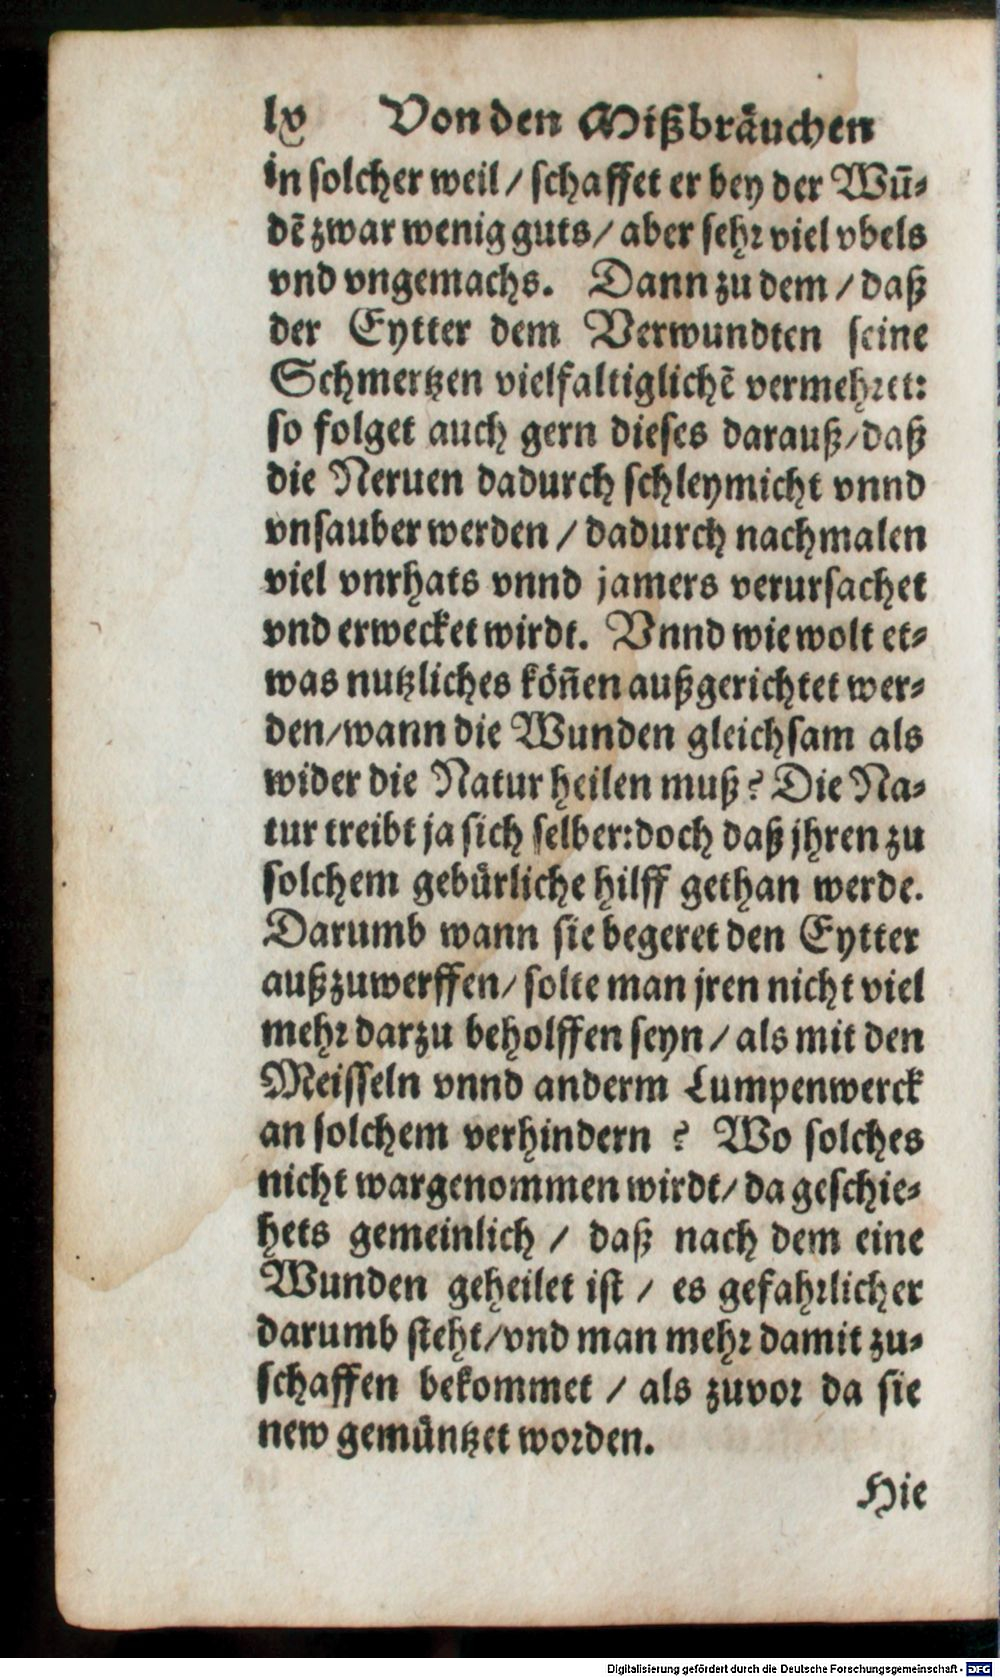 lv Von den Mißbräuchen
in solcher weil / schaffet er bey der Wūn⸗
dē zwar wenig guts / aber sehr viel vbels
vnd vngemachs. Dann zu dem / daß
der Eytter dem Verwundten seine
Schmertzen vielfaltiglichē vermehret:
so folget auch gern dieses darauß / daß
die Neruen dadurch schleymicht vnnd
vnsauber werden / dadurch nachmalen
viel vnrhats vnnd jamers verursachet
vnd erwecket wirdt. Vnnd wie wolt et⸗
was nutzliches kön̄en außgerichtet wer⸗
den / wann die Wunden gleichsam als
wider die Natur heilen muß? Die Na⸗
tur treibt ja sich selber: doch daß jhren zu
solchem gebürliche hilff gethan werde.
Darumb wann sie begeret den Eytter
außzuwerffen / solte man jren nicht viel
mehr darzu beholffen seyn / als mit den
Meisseln vnnd anderm Lumpenwerck
an solchem verhindern ? Wo solches
nicht wargenommen wirdt / da geschie⸗
hets gemeinlich / daß nach dem eine
Wunden geheilet ist / es gefahrlicher
darumb steht / vnd man mehr damit zu⸗
schaffen bekommet / als zuvor da sie
new gemüntzet worden.
Hie
Digitalisierung gefördert durch die Deutsche Forschungsgemeinschaft - DFG